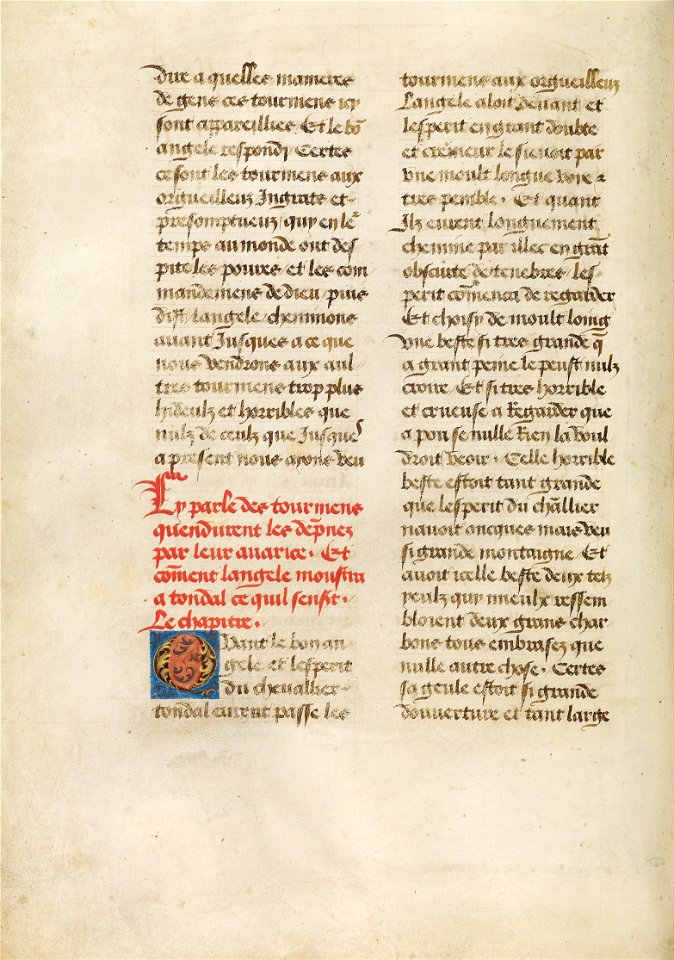 dire a quelles manieres
de gens ces tourmens icy
sont appareillies / Et le bō
angele respondj Certes
ce sont les tourmens aux
orgueilleux Jngrats et
presomptueux / quy en lē
temps au monde ont des
pite les poures / et les com
mandemens de dieu / puis
dist langele / cheminons
auant Jusques a ce que
nous vendrons aux aul
tres tourmens trop plus
hideulz et horribles que
nulz de ceulz que Jusques
a present nous ayons veu
Cy parle des tourmens
quendurent les dāpnez
par leur auarice. Et
cōment langele monstra
a tondal ce quil sensit.
Le chapitre.
Quant le bon an
gele et lesperit
du cheuallier
tondal eurent passe les
tourmens aux orgueilleux
Langele aloit deuant et
lesperit en grant doubte
et cremeur le sieuoit par
vne moult longue voie et
tres penible. Et quant
Jlz eurent longuement
chemine par illec en grāt
obscurte de tenebres / les
perit cōmenca de regarder
Et choisy de moult loing
vne beste si tres grande q̄
a grant peine le peust nulz
croire / Et si tres horrible
et crueuse a Regarder que
a pou se nulle Rien la voul
droit veoir. Celle horrible
beste estoit tant grande
que lesperit du chāllier
nauoit oncques mais veu
si grande montaigne / Et
auoit icelle beste deux telz
yeulz quy mieulx ressem
bloient deux grans char
bons tous embrasez que
nulle autre chose. Certes
sa geule estoit si grande
douuerture et tant large